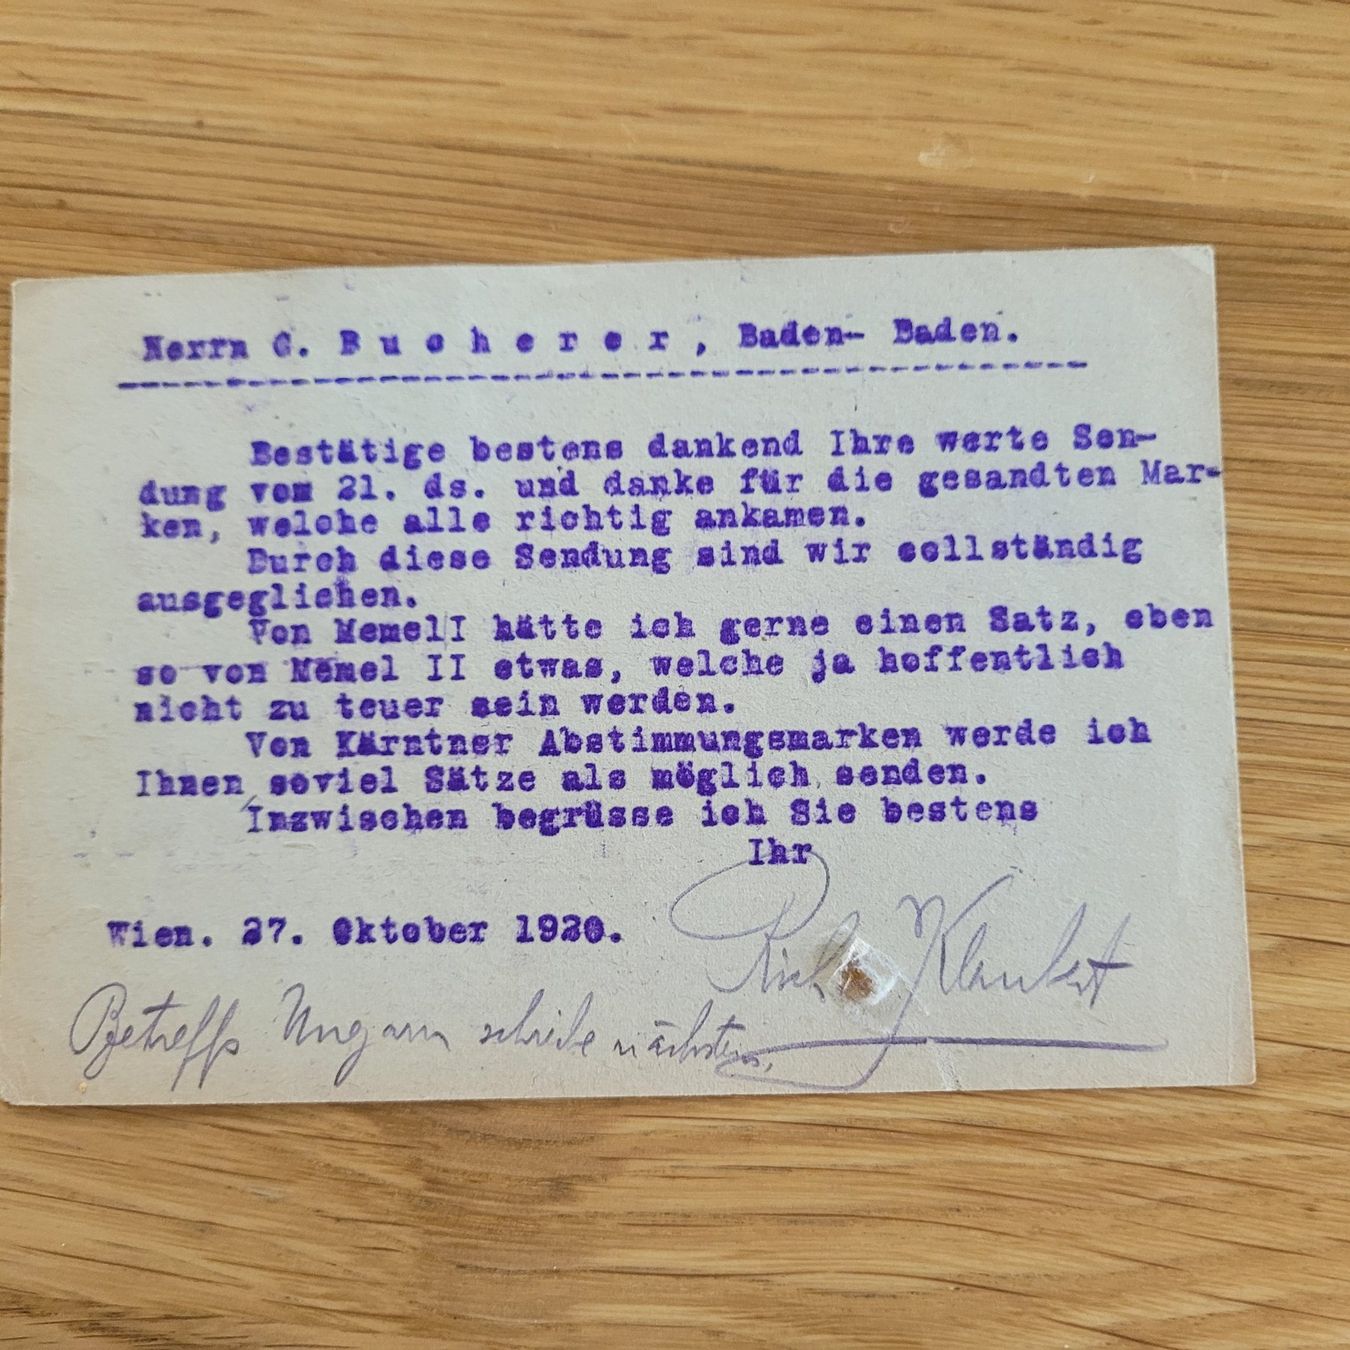 Herrn C. B u c h e r e r , Baden- Baden.
Bestätige bestens dankend Ihre werte Sen-
dung vom 21. ds. und danke für die gesandten Mar-
ken, welche alle richtig ankamen.
Durch diese Sendung sind wir collständig
ausgeglichen.
Von MemelI hätte ich gerne einen Satz, eben
so von Memel II etwas, welche ja hoffentlich
nicht zu teuer sein werden.
Von Kärntner Abstimmungsmarken werde ich
Ihnen soviel Sätze als möglich senden.
Inzwischen begrüsse ich Sie bestens
Ihr
Wien. 27. Oktober 1920.
Betreffs Ungarn schreibe nächstens.